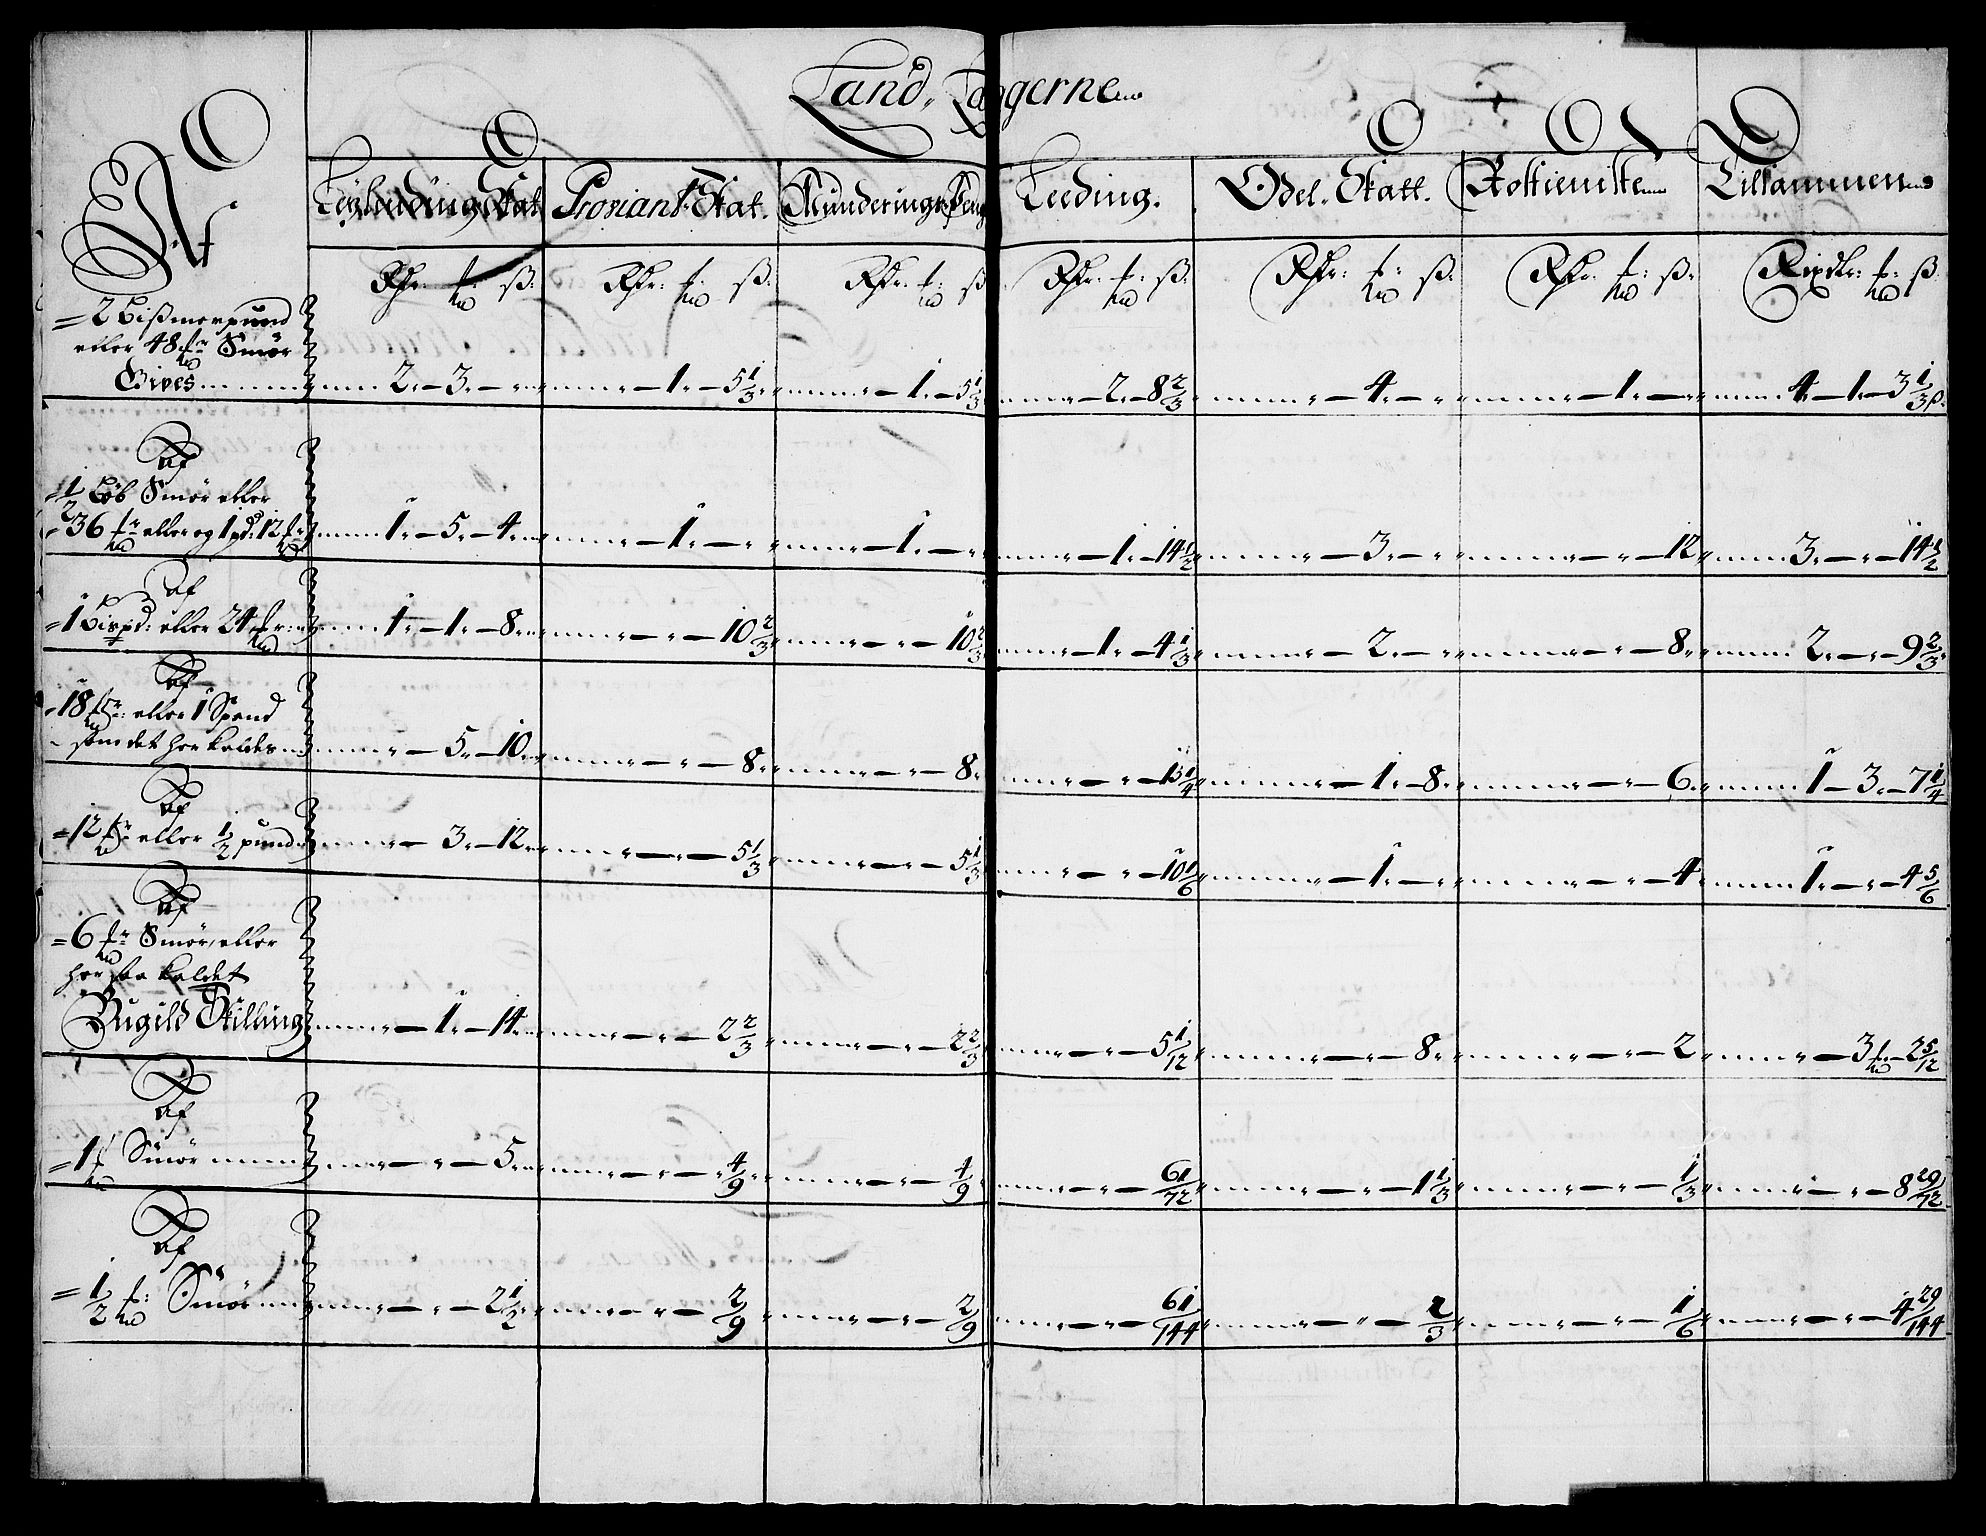 Land, Laugerne
Af
Leylendings Skat Proviant-Skat. Munderings Peng Leeding. Odel-Skatt. Rostieniste Tilsammen
Rdr: ß: Rdr: ß: Rdr. ß Rdr. ß: Rdr: ß: Rdr. ß: Rixdlr: ß
=2 Bißmerpund
eller 48 Smör
Gives 2. 3. 1. 5 1/3 1. 5 1/3 2. 8 2/3 4. 1. 4. 1. 3 1/3 ß.
Af
=1/2 Löb Smör eller
=36 eller og 1 pd: 12 1. 5. 4. 1. 1. 1. 14 1/2 3. 12 3. 14 1/2
af
=1 Bispd: eller 24 1. 1. 8. 10 2/3 10 2/3 1. 4 1/3 2. 8. 2. 9 2/3
af
=18 eller 1 Spand
som det her kaldes 5. 10. 8. 8. 15 1/4 1. 8. 6. 1. 3. 7 1/4
Af
=12 eller 1/2 pund 3. 12. 5 1/3 5 1/3 10 1/6 1. 4 1. 4 5/6
Af
=6 Smör, eller
her saa kaldet
Bugild Skilling 1. 14. 2 2/3 2 2/3 5 1/12 8. 2 3 2 5/12
Af
=1 Smör 5. 4/9 4/9 61/72 1 1/3 1/3 8 29/72
Af
=1/2 Smör 2 1/2 2/9 2/9 61/144 2/3 1/6 4 29/144